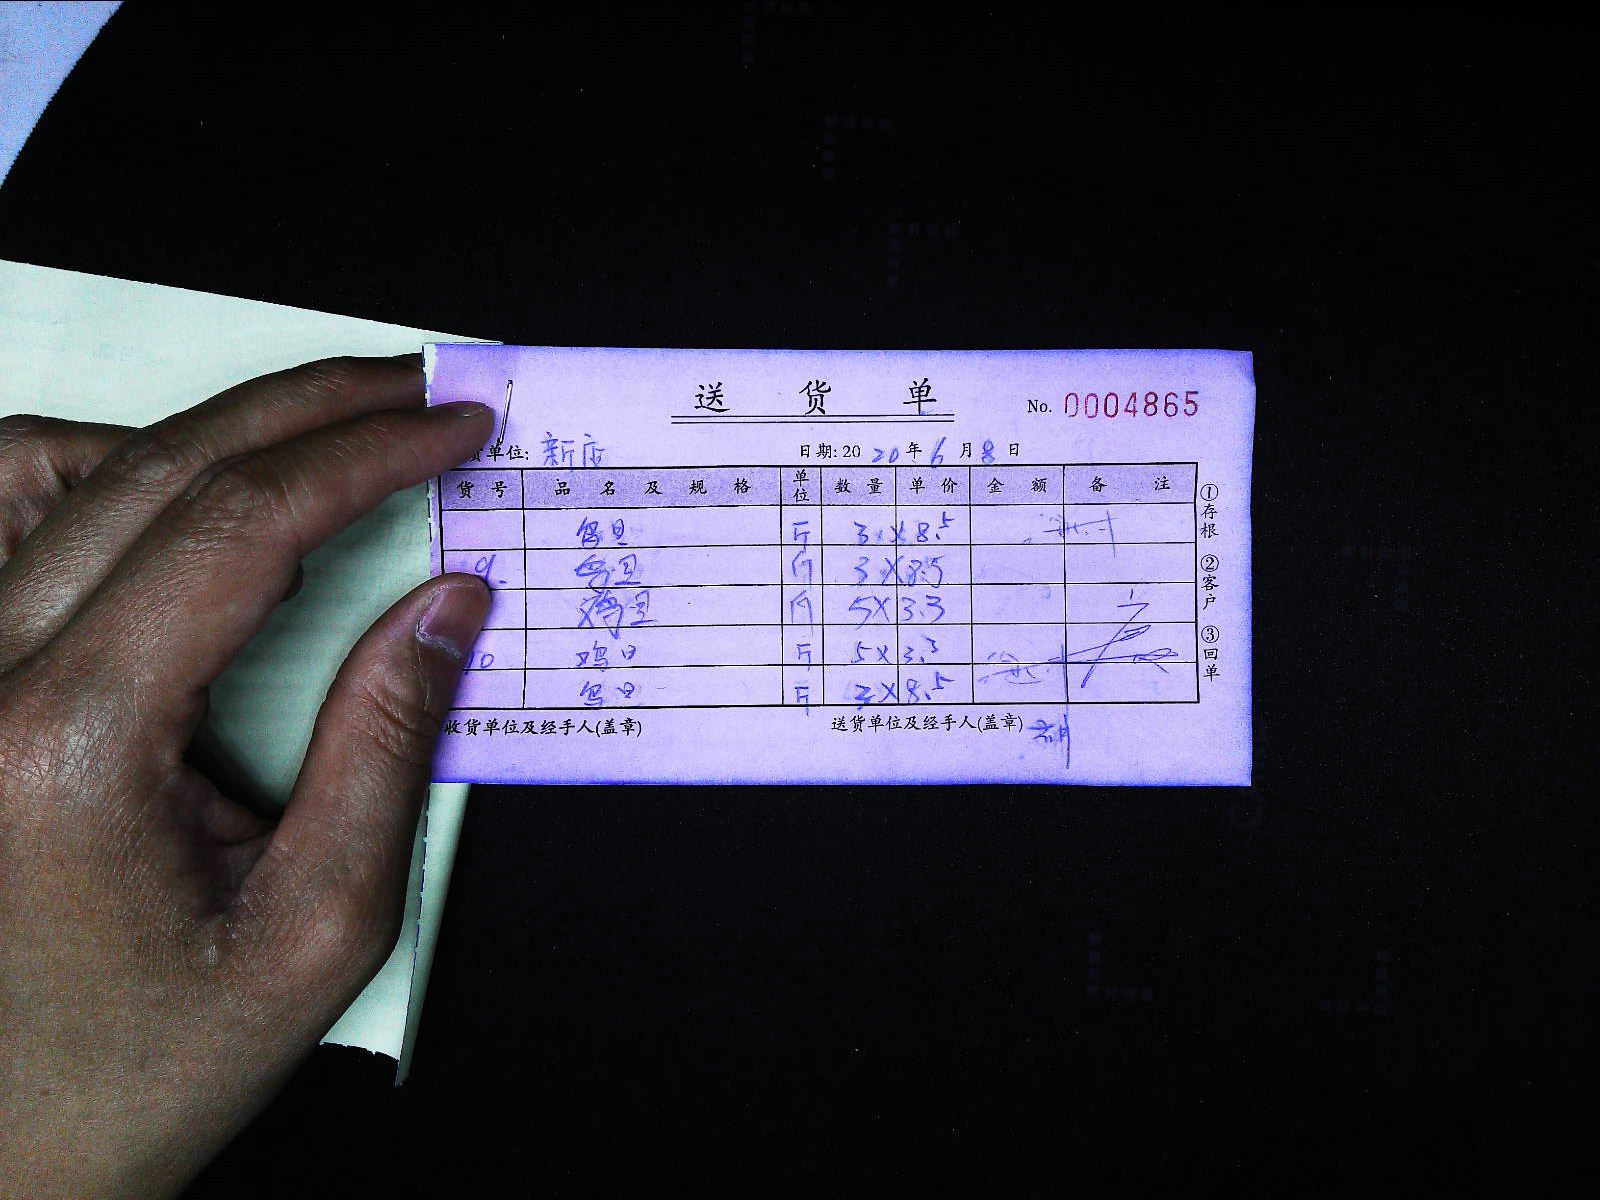 送 货 单
No. 0004865
货单位: 新店 日期: 20 20 年 6 月 8 日
货号 品名及规格 单位 数量 单价 金额 备注
斤 3 × 8.5
9. 斤 3 × 8.5
鸡旦 斤 5 × 3.3
10 鸡旦 斤 5 × 3.3
斤 3 × 8.5
①存根 ②客户 ③回单
收货单位及经手人(盖章) 送货单位及经手人(盖章)